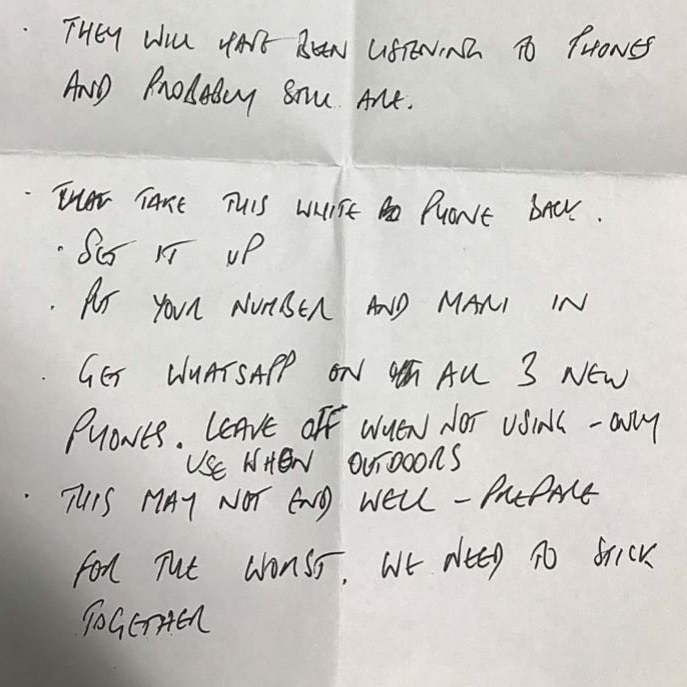 · THEY WILL HAVE BEEN LISTENING TO PHONES
AND PROBABLY STILL ARE.
· TAKE THIS WHITE PHONE BACK.
· SET IT UP
· PUT YOUR NUMBER AND MARI IN
· GET WHATSAPP ON ALL 3 NEW
PHONES. LEAVE OFF WHEN NOT USING - ONLY
USE WHEN OUTDOORS
· THIS MAY NOT END WELL - PREPARE
FOR THE WORST. WE NEED TO STICK
TOGETHER